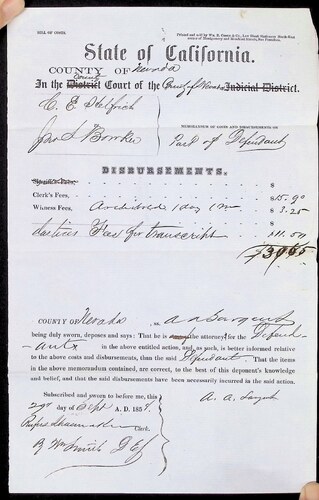 BILL OF COSTS.
Printed and sold by Wm. B. Cooke & Co., Law Blank Stationers, North-East
corner of Montgomery and Merchant Street, San Francisco.
State of California.
COUNTY OF Nevada
County
In the District Court of the County of Nevada Judicial District.
C. E.
MEMORANDUM OF COSTS AND DISBURSEMENTS ON
Part of Defendant
DISBURSEMENTS.
Sheriff's Fees, $
Clerk's Fees, $ 15.90
Witness Fees, 1 day $ 3.25
Justices Fees for transcript $ 11.50
COUNTY OF Nevada ss. A A Sargent
being duly sworn, deposes and says: That he is the attorney for the Defend-
-ants in the above entitled action, and as such, is better informed relative
to the above costs and disbursements, than the said Defendant. That the items
in the above memorandum contained, are correct, to the best of this deponent's knowledge
and belief, and that the said disbursements have been necessarily incurred in the said action.
Subscribed and sworn to before me, this
A. A. Sargent
day of Sept A. D. 185
Rufus Shoemaker Clerk.
By Wm Smith D